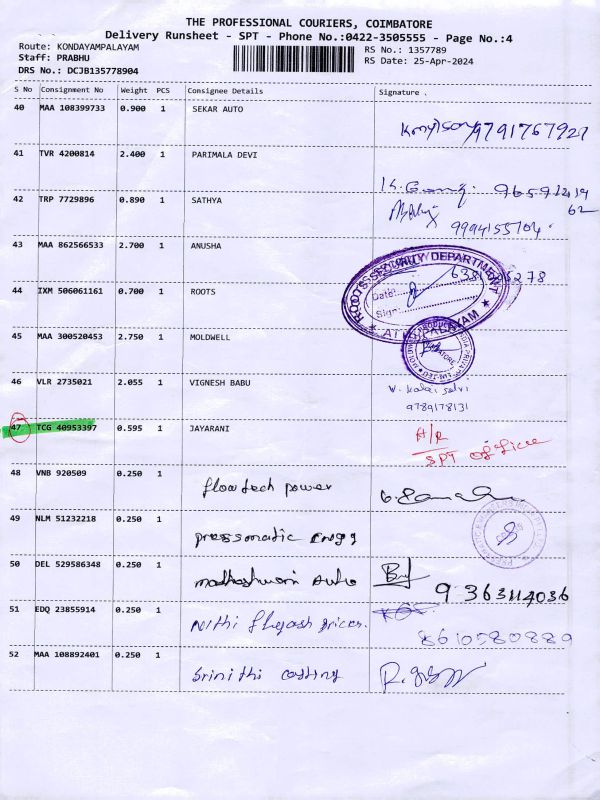 THE PROFESSIONAL COURIERS, COIMBATORE
Delivery Runsheet - SPT - Phone No.:0422-3505555 - Page No.:4
Route: KONDAYAMPALAYAM
Staff: PRABHU
DRS No.: DCJB135778904
RS No.: 1357789
RS Date: 25-Apr-2024
S No Consignment No Weight PCS Consignee Details Signature .
40 MAA 108399733 0.900 1 SEKAR AUTO
9791767927
41 TVR 4200814 2.400 1 PARIMALA DEVI
42 TRP 7729896 0.890 1 SATHYA
9994155704.
43 MAA 862566533 2.700 1 ANUSHA
44 IXM 506061161 0.700 1 ROOTS
SECURITY DEPARTMENT
Date:
Sign:
45 MAA 300520453 2.750 1 MOLDWELL
46 VLR 2735021 2.055 1 VIGNESH BABU
V. Kalai selvi
9789178131
47 TCG 40953397 0.595 1 JAYARANI
A/R
SPT office
48 VNB 920509 0.250 1 flowtech power
49 NLM 51232218 0.250 1 pressmatic engg
50 DEL 529586348 0.250 1 madheshwari Auto
9 363114036
51 EDQ 23855914 0.250 1 Nithi flyash bricks.
8610580889
52 MAA 108892401 0.250 1 Srinithi casting